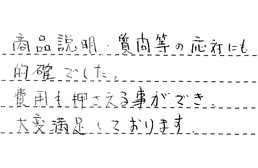 商品説明・質問等の応対にも
的確でした。
費用も押さえる事ができ、
大変満足しております。